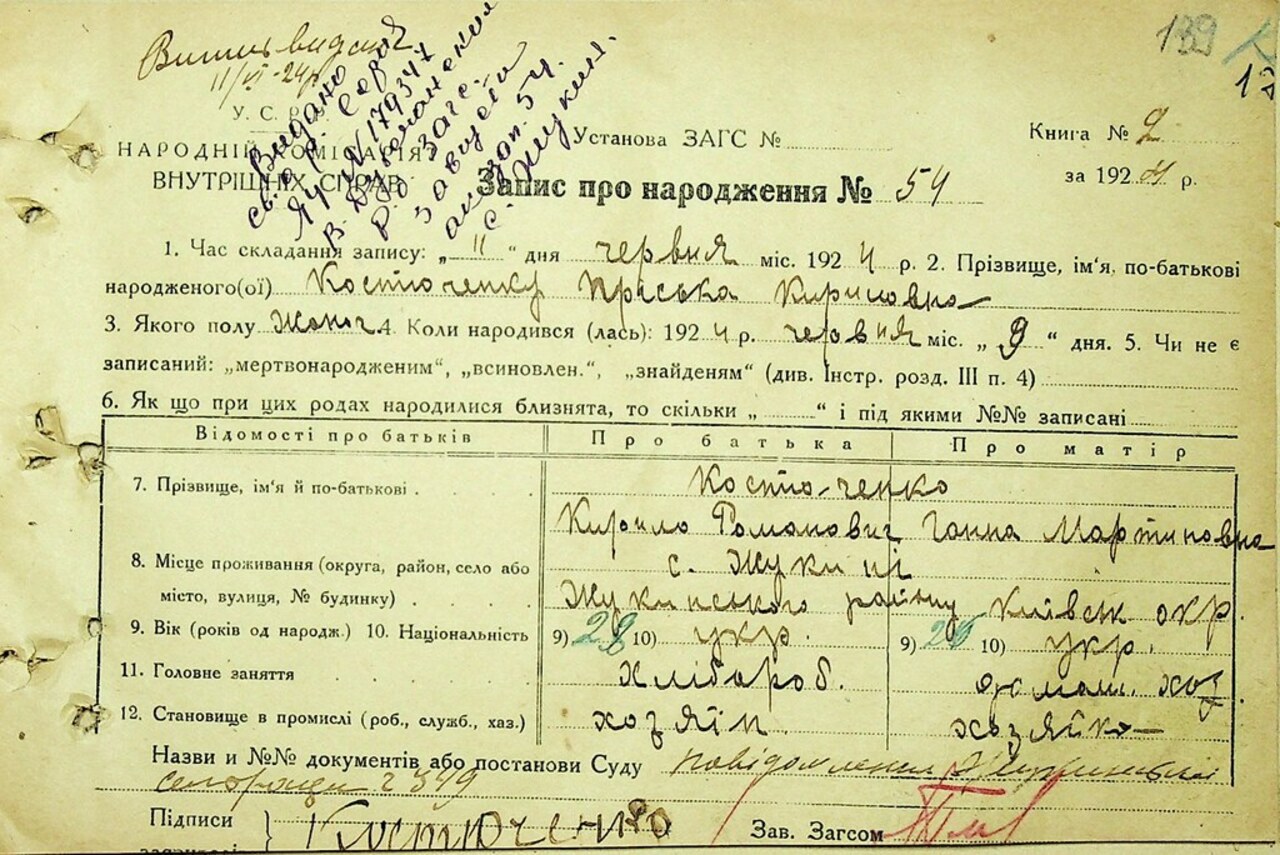 139
11/VI-24р
У. С. Р. Р.
НАРОДНІЙ КОМІСАРІЯТ
ВНУТРІШНІХ СПРАВ
Видано
ЯУ № 179347
Р. Б. ЗАГС.
с. Жукині.
Установа ЗАГС №
Книга № 2
за 1924 р.
Запис про народження № 54
1. Час складання запису: „11“ дня червня міс. 1924 р. 2. Прізвище, ім'я, по-батькові
народженого(ої) Костюченку Пріська Кириловна
3. Якого полу Жоноч. 4. Коли народився (лась): 1924 р. червня міс. „9“ дня. 5. Чи не є
записаний: „мертвонародженим“, „всиновлен.“, „знайденям“ (див. Інстр. розд. III п. 4)
6. Як що при цих родах народилися близнята, то скільки „ “ і під якими №№ записані
Відомості про батьків Про батька Про матір
7. Прізвище, ім'я й по-батькові Костюченко
Кирило Романович Ганна Мартиновна
8. Місце проживання (округа, район, село або с. Жукині
місто, вулиця, № будинку) Жукинського району Київськ окр.
9. Вік (років од народж.) 10. Національність 9) 28 10) укр. 9) 26 10) укр.
11. Головне заняття хлібороб. домаш. хоз
12. Становище в промислі (роб., служб., хаз.) хозяїн. хозяйка
Назви и №№ документів або постанови Суду повідомлення Жукинської
сельради ч 349
Підписи } Костюченко Зав. Загсом